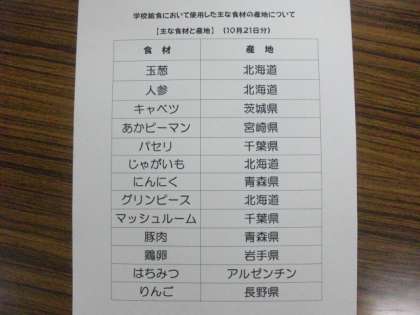 学校給食において使用した主な食材の産地について
【主な食材と産地】 (10月21日分)
食 材 産 地
玉葱 北海道
人参 北海道
キャベツ 茨城県
あかピーマン 宮崎県
パセリ 千葉県
じゃがいも 北海道
にんにく 青森県
グリンピース 北海道
マッシュルーム 千葉県
豚肉 青森県
鶏卵 岩手県
はちみつ アルゼンチン
りんご 長野県